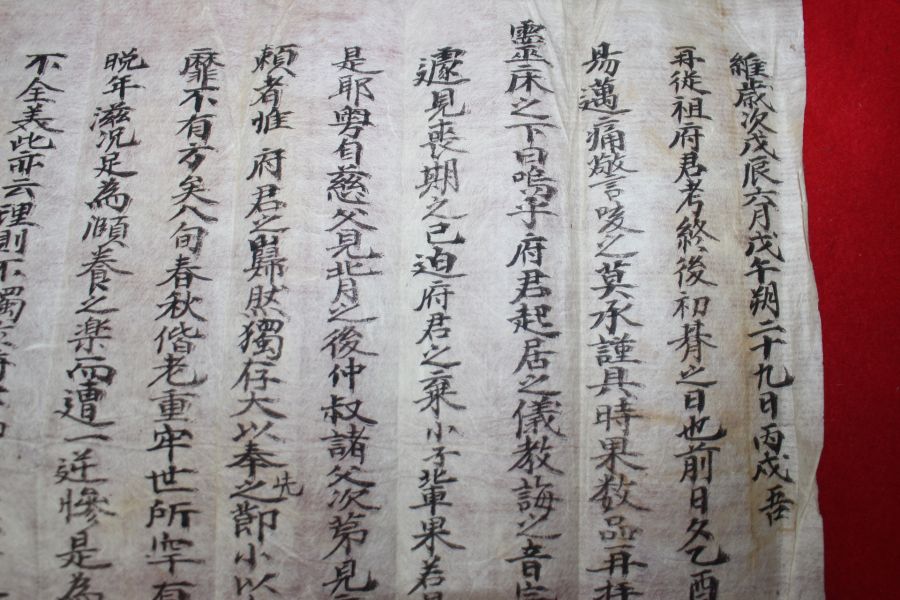 維歲次戊辰六月戊午朔二十九日丙戌吾
再從祖府君考終後初朞之日也前日夕乙酉
易邁痛警言咳之莫承謹具時果数品再拜
靈床之下曰嗚乎府君起居之儀教誨之音
遽見喪期之已迫府君之棄小子輩果若是
是耶粤自慈父見背之後仲叔諸父次第見
頼者惟府君之巋然獨存大以奉先之節小以
靡不有方矣八旬春秋偕老重牢世所罕有
晩年滋况足為頤養之楽而遭一逆慘是為
不全美此亦云理則不獨